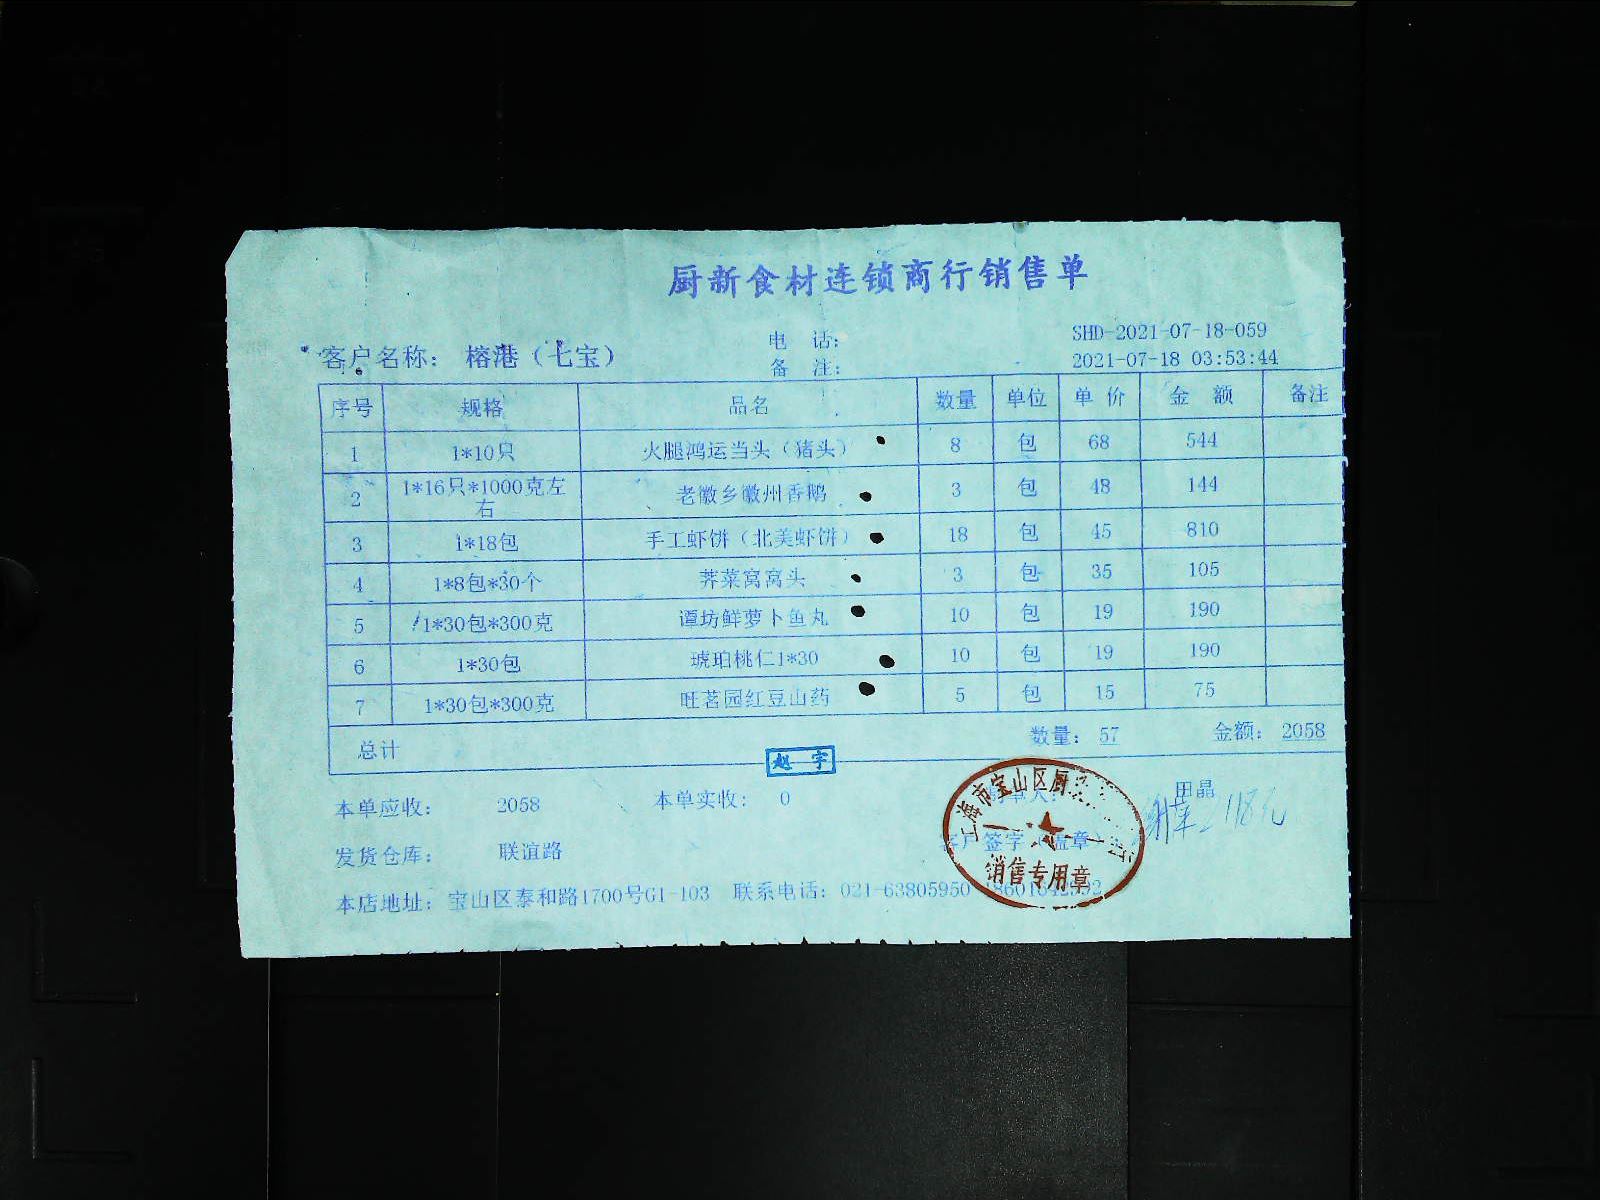 厨新食材连锁商行销售单
客户名称： 榕港（七宝） 电 话： SHD-2021-07-18-059
备 注： 2021-07-18 03:53:44
序号 规格 品名 数量 单位 单 价 金 额 备注
1 1*10只 火腿鸿运当头（猪头） 8 包 68 544
2 1*16只*1000克左右 老徽乡徽州香鹅 3 包 48 144
3 1*18包 手工虾饼（北美虾饼） 18 包 45 810
4 1*8包*30个 荠菜窝窝头 3 包 35 105
5 1*30包*300克 谭坊鲜萝卜鱼丸 10 包 19 190
6 1*30包 琥珀桃仁1*30 10 包 19 190
7 1*30包*300克 旺茗园红豆山药 5 包 15 75
总计 数量： 57 金额： 2058
赵 宇
本单应收： 2058 本单实收： 0 制单人： 田晶
上海市宝山区厨
发货仓库： 联谊路 客户签字（盖章）
销售专用章
本店地址： 宝山区泰和路1700号G1-103 联系电话：021-63805950